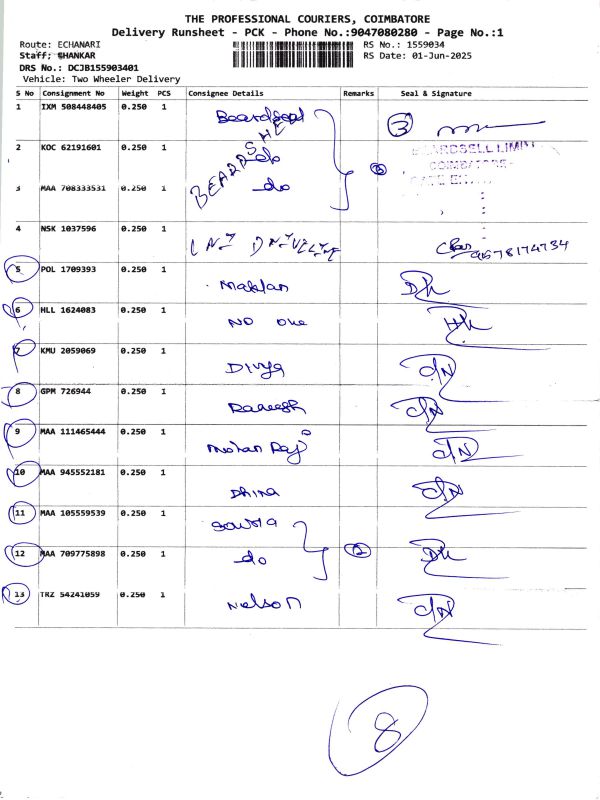 THE PROFESSIONAL COURIERS, COIMBATORE
Delivery Runsheet - PCK - Phone No.:9047080280 - Page No.:1
Route: ECHANARI
RS No.: 1559034
Staff: SHANKAR
RS Date: 01-Jun-2025
DRS No.: DCJB155903401
Vehicle: Two Wheeler Delivery
S No Consignment No Weight PCS Consignee Details Remarks Seal & Signature
1 IXM 508448405 0.250 1 Beardsell 3
2 KOC 62191601 0.250 1 do
BEARDSHELL
3
BEARDSELL LIMI
COIMBATORE-
3 MAA 708333531 0.250 1 do
4 NSK 1037596 0.250 1
9578174734
5 POL 1709393 0.250 1
6 HLL 1624083 0.250 1 NO one
7 KMU 2059069 0.250 1 Divya
8 GPM 726944 0.250 1
9 MAA 111465444 0.250 1 Mohan Raj
10 MAA 945552181 0.250 1 Dhina
11 MAA 105559539 0.250 1
12 MAA 709775898 0.250 1 do 2
13 TRZ 54241059 0.250 1 Nelson
8